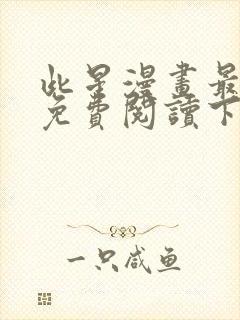 此星漫畫最
免費閱讀下
一只咸鱼